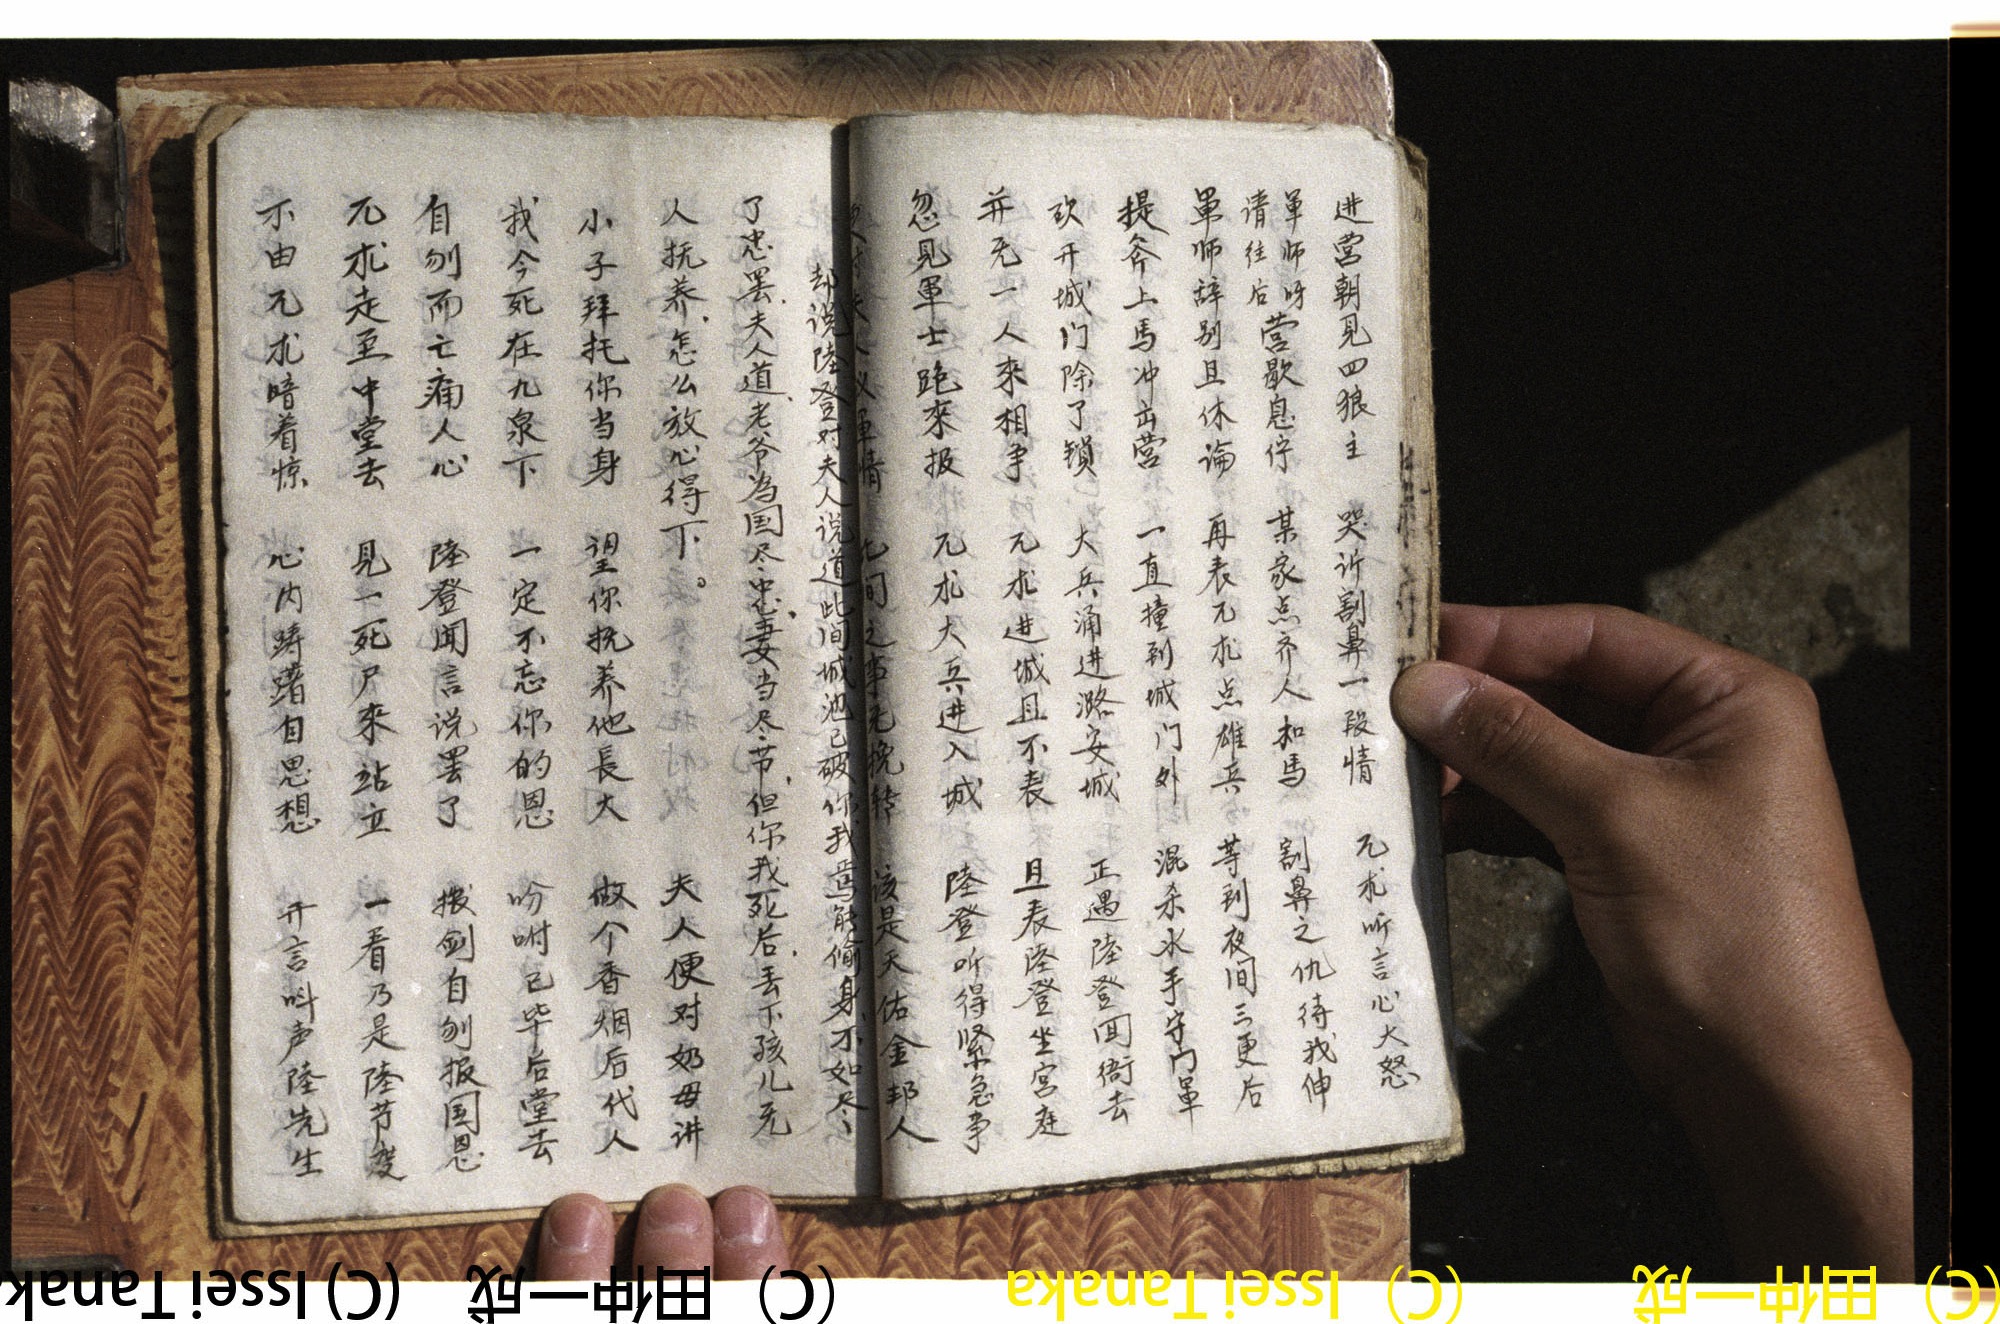 进营朝見四狼主 哭訴割鼻一段情 兀朮听言心大怒
軍师呀请往后营歇息停 某家点齐人和馬 割鼻之仇待我伸
軍师辞别且休論 再表兀朮点雄兵 等到夜间三更后
提斧上馬冲出营 一直撞到城门外 混杀水手守门軍
砍开城门除了锁 大兵涌进潞安城 正遇陸登回衙去
并无一人來相争 兀朮进城且不表 且表陸登坐宫庭
忽見軍士跑來报 兀朮大兵进入城 陸登听得紧急事
夫人议軍情 此间之事无挽转 该是天佑金邦人
却说陸登对夫人说道此间城池已破你我焉能偷身不如尽
了忠罢夫人道老爷为国尽忠妻当尽节但你我死后丢下孩儿无
人抚养怎么放心得下。 夫人便对奶母讲
小子拜托你当身 望你抚养他長大 做个香烟后代人
我今死在九泉下 一定不忘你的恩 吩咐已毕后堂去
自刎而亡痛人心 陸登闻言说罢了 拔剑自刎报国恩
兀朮走至中堂去 見一死尸來站立 一看乃是陸节度
不由兀朮暗着惊 心内踌躇自思想 开言叫声陸先生
(C) Issei Tanaka (C) 田仲一成 (C) Issei Tanaka (C) 田仲一成